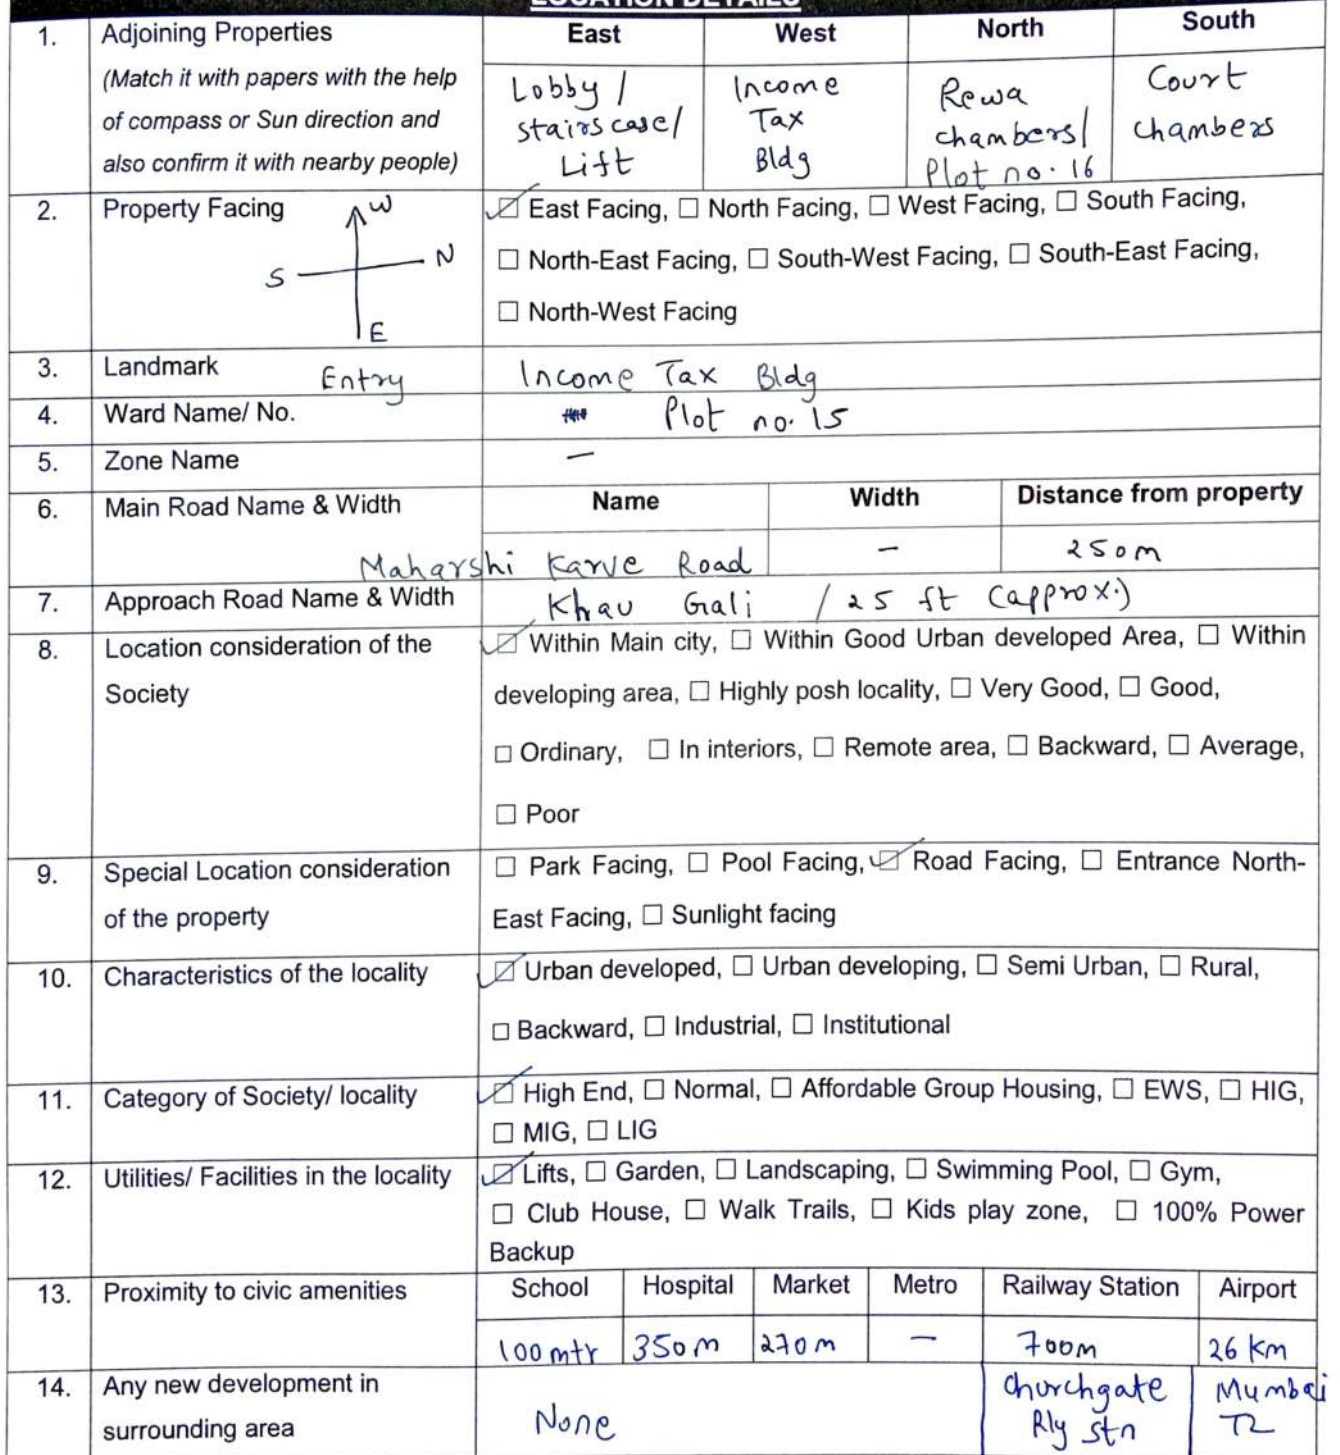 LOCATION DETAILS
1. Adjoining Properties East West North South
(Match it with papers with the help of compass or Sun direction and also confirm it with nearby people)
Lobby / stairscase/ Lift
Income Tax Bldg
Rewa chambers/ Plot no. 16
Court chambers
2. Property Facing
W
S N
E
Entry
☑ East Facing, ☐ North Facing, ☐ West Facing, ☐ South Facing,
☐ North-East Facing, ☐ South-West Facing, ☐ South-East Facing,
☐ North-West Facing
3. Landmark Income Tax Bldg
4. Ward Name/ No. Plot no. 15
5. Zone Name —
6. Main Road Name & Width Name Width Distance from property
Maharshi Karve Road — 250m
7. Approach Road Name & Width Khau Gali / 25 ft (approx.)
8. Location consideration of the Society
☑ Within Main city, ☐ Within Good Urban developed Area, ☐ Within
developing area, ☐ Highly posh locality, ☐ Very Good, ☐ Good,
☐ Ordinary, ☐ In interiors, ☐ Remote area, ☐ Backward, ☐ Average,
☐ Poor
9. Special Location consideration of the property
☐ Park Facing, ☐ Pool Facing, ☑ Road Facing, ☐ Entrance North-
East Facing, ☐ Sunlight facing
10. Characteristics of the locality
☑ Urban developed, ☐ Urban developing, ☐ Semi Urban, ☐ Rural,
☐ Backward, ☐ Industrial, ☐ Institutional
11. Category of Society/ locality
☑ High End, ☐ Normal, ☐ Affordable Group Housing, ☐ EWS, ☐ HIG,
☐ MIG, ☐ LIG
12. Utilities/ Facilities in the locality
☑ Lifts, ☐ Garden, ☐ Landscaping, ☐ Swimming Pool, ☐ Gym,
☐ Club House, ☐ Walk Trails, ☐ Kids play zone, ☐ 100% Power
Backup
13. Proximity to civic amenities School Hospital Market Metro Railway Station Airport
100 mtr 350m 270m — 700m 26 km
Churchgate Rly stn
Mumbai T2
14. Any new development in surrounding area
None